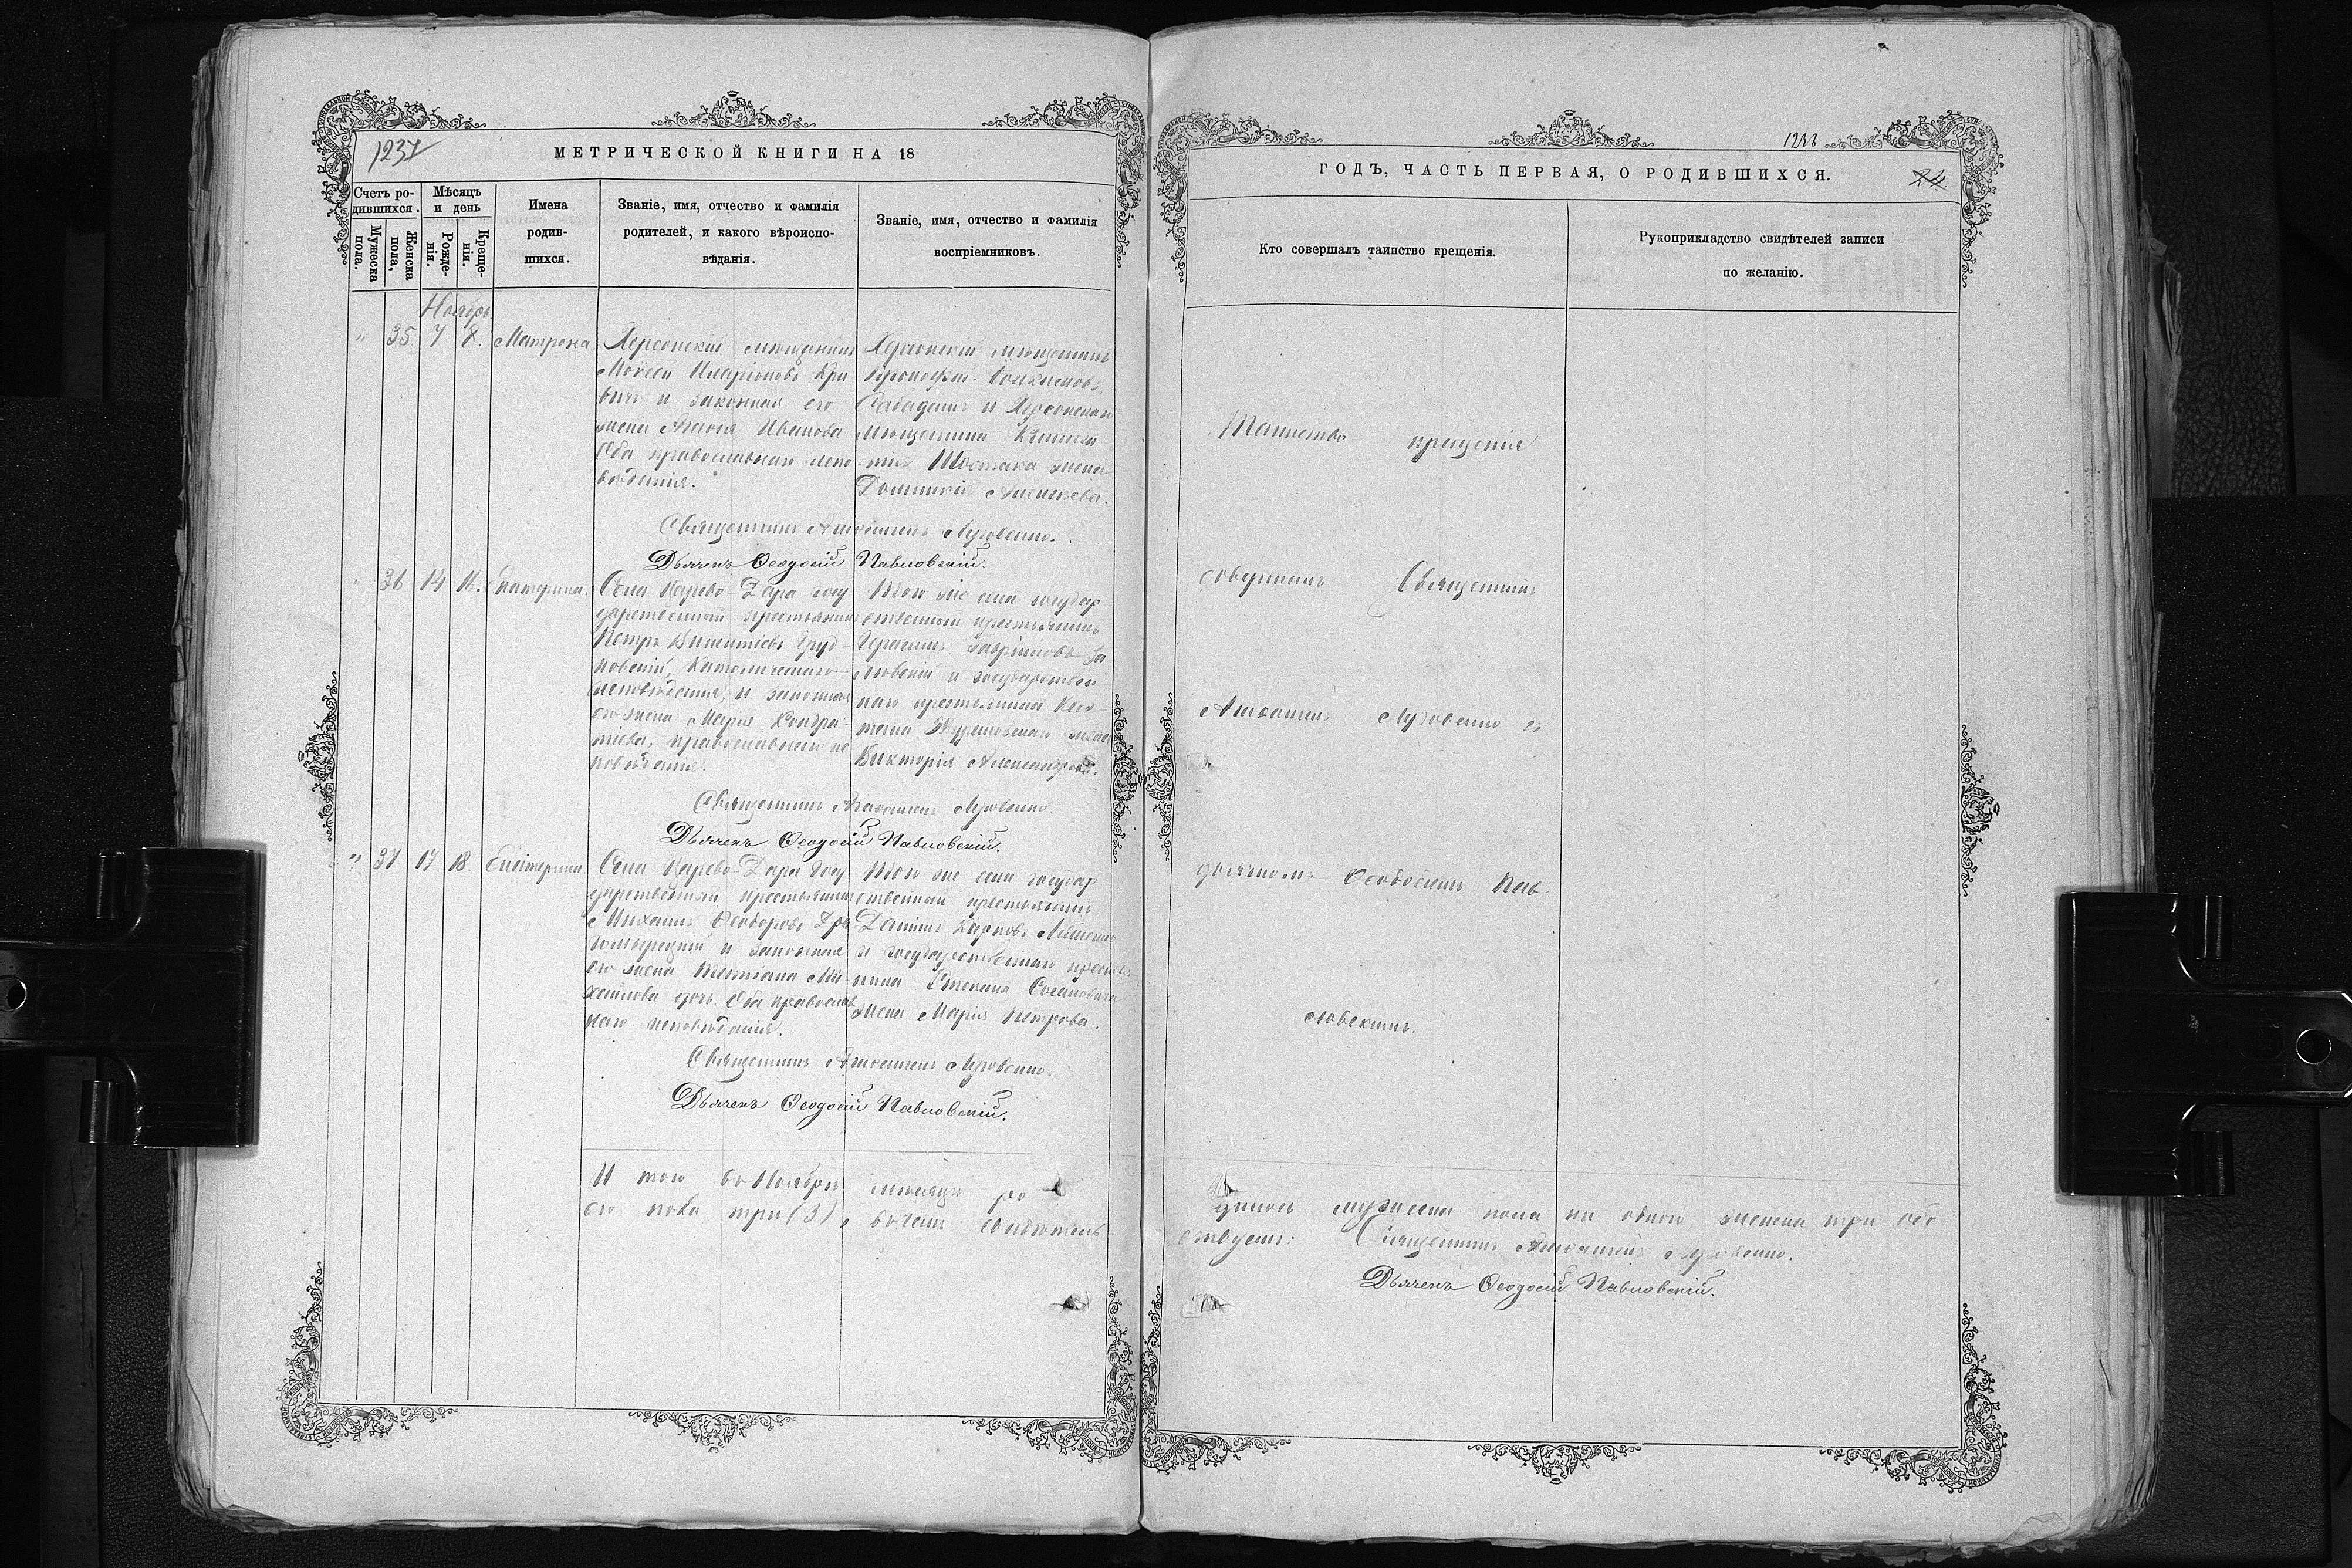 1237
МЕТРИЧЕСКОЙ КНИГИ НА 18
Счетъ ро-
дившихся.
Мужеска
пола.
Женска
пола,
Мѣсяцъ
и день
Рожде-
нія.
Креще-
нія.
Имена
родив-
шихся.
Званіе, имя, отчество и фамилія
родителей, и какого вѣроиспо-
вѣданія.
Званіе, имя, отчество и фамилія
воспріемниковъ.
Ноябрь
" 35. 7 8. Матрона
Херсонскій мѣщанинъ
Моисей Иларіоновъ Кри
вичъ и законная его
жена Агафія Иванова
Оба православнаго испо
вѣданія.
Херсонскій мѣщанинъ
и Херсонскаго
мѣщанина
Шостака жена
Домникія Алексѣева.
Священникъ Аѳанасій Лузовенко.
Дьячекъ Ѳеодосій Павловскій.
" 36 14 16. Екатерина.
Села Царево-Дара госу
дарственный крестьянинъ
Петръ Викентіевъ Груд-
новскій, Католическаго
исповѣданія, и законная
его жена Марія Кондра-
тіева, православнаго ис
повѣданія.
Того же села государ
ственный крестьянинъ
Герасимъ Гавріиловъ За
ловскій и государствен
наго крестьянина
жена
Викторія Александрова.
Священникъ Аѳанасій Лузовенко.
Дьячекъ Ѳеодосій Павловскій.
" 37 17 18. Екатерина
Села Царево-Дара госу
дарственный крестьянинъ
Михаилъ Ѳеодоровъ Дра
и законная
его жена Татіана Ми-
хайлова дочь. Оба православ
наго исповѣданія.
Того же села государ
ственный крестьянинъ
Даніилъ Карповъ
и государственнаго крестья-
нина Степана
жена Марія Петрова.
Священникъ Аѳанасій Лузовенко.
Дьячекъ Ѳеодосій Павловскій.
И того въ Ноябрѣ мѣсяцѣ ро
его пола три (3), въ чемъ свидѣтель
ГОДЪ, ЧАСТЬ ПЕРВАЯ, О РОДИВШИХСЯ.
24
Кто совершалъ таинство крещенія.
Рукоприкладство свидѣтелей записи
по желанію.
Таинство крещенія
совершилъ Священникъ
Аѳанасій Лузовенко съ
дьячкомъ Ѳеодосіемъ Пав-
ловскимъ.
дилось мужеска пола ни одного, женска три обо
ствуемъ: Священникъ Аѳанасій Лузовенко.
Дьячекъ Ѳеодосій Павловскій.